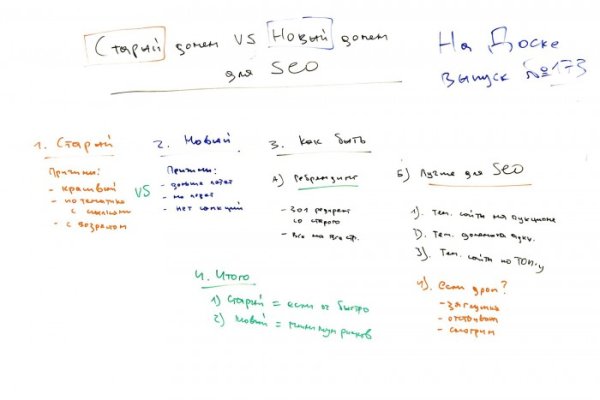 Старый домен VS Новый домен
для SEO
На Доске
выпуск №173
1. Старый
Причины:
- красивый
- по тематике
с ссылками
- с возрастом
VS
2. Новый
Причины:
- дольше
- не
- нет санкций
3. Как быть
А) Ребрендинг
- 301 редирект
со старого
- Все на все стр.
Б) Лучше для SEO
1). Тем. сайты на аукционе
2). Тем. домена аукц.
3). Тем. сайты по ТОП-у
4). Если дроп?
- заглушка
- отстойник
- смотрим
4. Итого
1) Старый = если оч быстро
2) Новый = минимум рисков